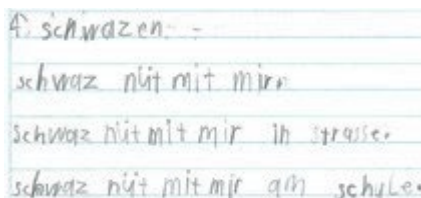 4) schwazen: -
schwaz nüt mit mir.
schwaz nüt mit mir in strasse.
schwaz nüt mit mir am schule.